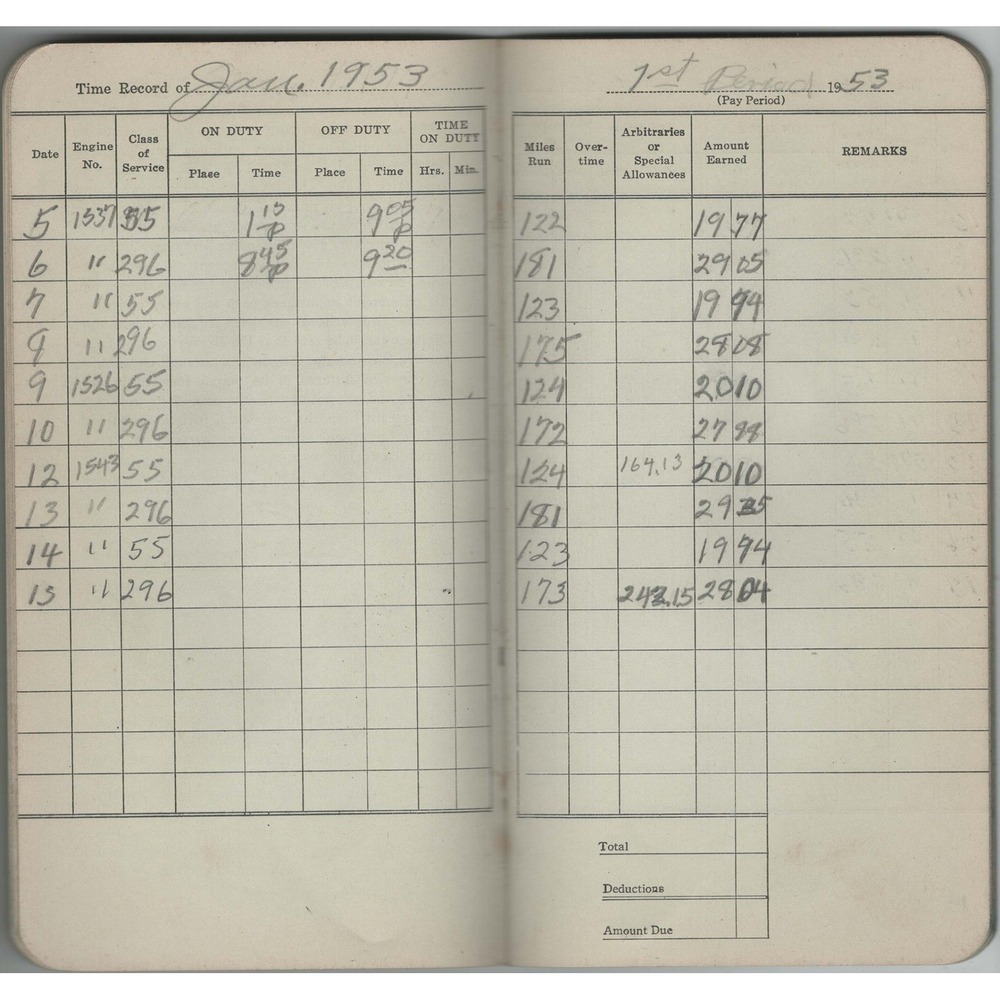 Time Record of Jan. 1953
Date Engine No. Class of Service ON DUTY Place Time OFF DUTY Place Time TIME ON DUTY Hrs. Min.
5 1537 55 1 15 p 9 05 p
6 " 296 8 45 p 9 20
7 " 55
8 " 296
9 1526 55
10 " 296
12 1543 55
13 " 296
14 " 55
15 " 296
1st Period 1953
(Pay Period)
Miles Run Over-time Arbitraries or Special Allowances Amount Earned REMARKS
122 19 77
181 29 05
123 19 94
175 28 08
124 20 10
172 27 88
124 164.13 20 10
181 29 35
123 19 94
173 242.15 28 04
Total
Deductions
Amount Due